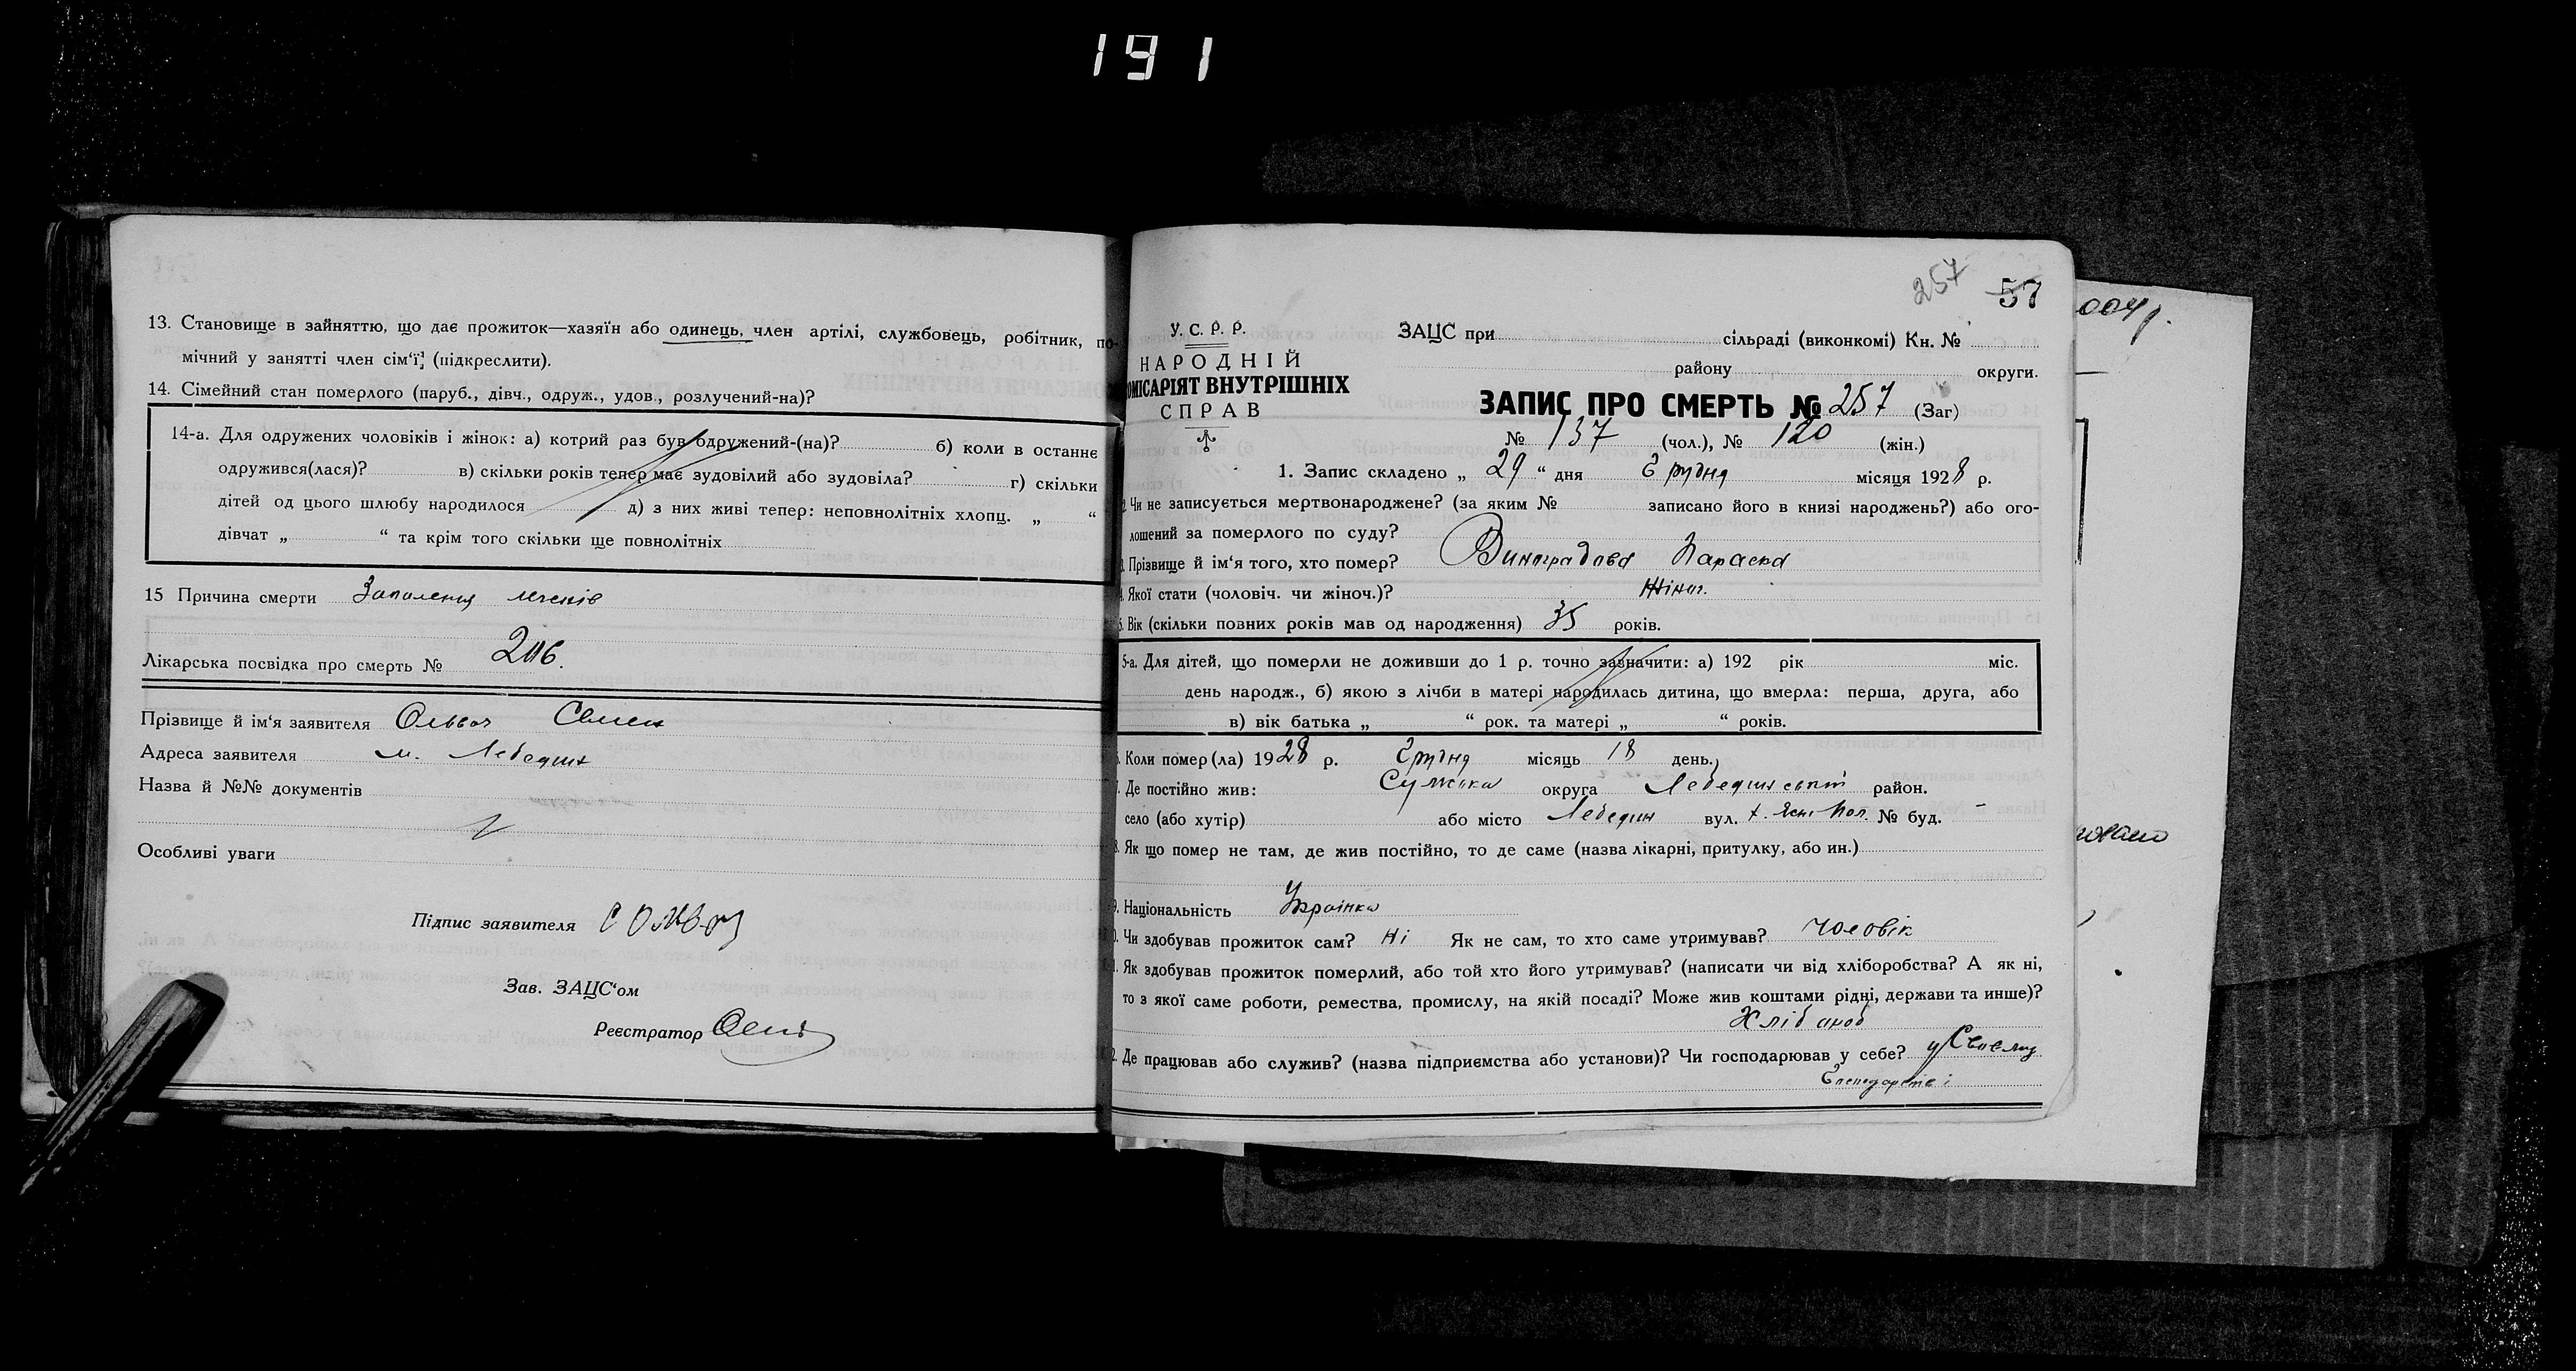 191
13. Становище в зайняттю, що дає прожиток—хазяїн або одинець, член артілі, службовець, робітник, по-
мічний у занятті член сім'ї, (підкреслити).
14. Сімейний стан померлого (паруб., дівч., одруж., удов., розлучений-на)?
14-а. Для одружених чоловіків і жінок: а) котрий раз був одружений-(на)? б) коли в останнє
одружився(лася)? в) скільки років тепер має зудовілий або зудовіла? г) скільки
дітей од цього шлюбу народилося д) з них живі тепер: неповнолітніх хлопц. „ “
дівчат „ “ та крім того скільки ще повнолітніх
15 Причина смерти Запалення легенів
Лікарська посвідка про смерть № 206.
Прізвище й ім'я заявителя Семен
Адреса заявителя м. Лебедин
Назва й №№ документів
Особливі уваги
Підпис заявителя
Зав. ЗАЦС'ом
Реєстратор
257 57
У. С. Р. Р.
НАРОДНІЙ
ОМІСАРІЯТ ВНУТРІШНІХ
СПРАВ
ЗАЦС при сільраді (виконкомі) Кн. №
району округи.
ЗАПИС ПРО СМЕРТЬ № 257 (Заг)
№ 137 (чол.), № 120 (жін.)
1. Запис складено „ 29 “ дня Грудня місяця 1928 р.
Чи не записується мертвонароджене? (за яким № записано його в книзі народжень?) або ого-
лошений за померлого по суду?
Прізвище й ім'я того, хто помер? Виноградова Параска
Якої стати (чоловіч. чи жіноч.)? Жіноч.
Вік (скільки повних років мав од народження) 35 років.
5-а. Для дітей, що померли не доживши до 1 р. точно зазначити: а) 192 рік міс.
день народж., б) якою з лічби в матері народилась дитина, що вмерла: перша, друга, або
в) вік батька „ “ рок. та матері „ “ років.
Коли помер(ла) 1928 р. Грудня місяць 18 день.
Де постійно жив: Сумська округа Лебединський район.
село (або хутір) або місто Лебедин вул. № буд. -
Як що помер не там, де жив постійно, то де саме (назва лікарні, притулку, або ин.)
9. Національність Українка
Чи здобував прожиток сам? Ні Як не сам, то хто саме утримував? чоловік
Як здобував прожиток померлий, або той хто його утримував? (написати чи від хліборобства? А як ні,
то з якої саме роботи, ремества, промислу, на якій посаді? Може жив коштами рідні, держави та инше)?
Де працював або служив? (назва підприємства або установи)? Чи господарював у себе? у Своєму
Господарстві
004 р.